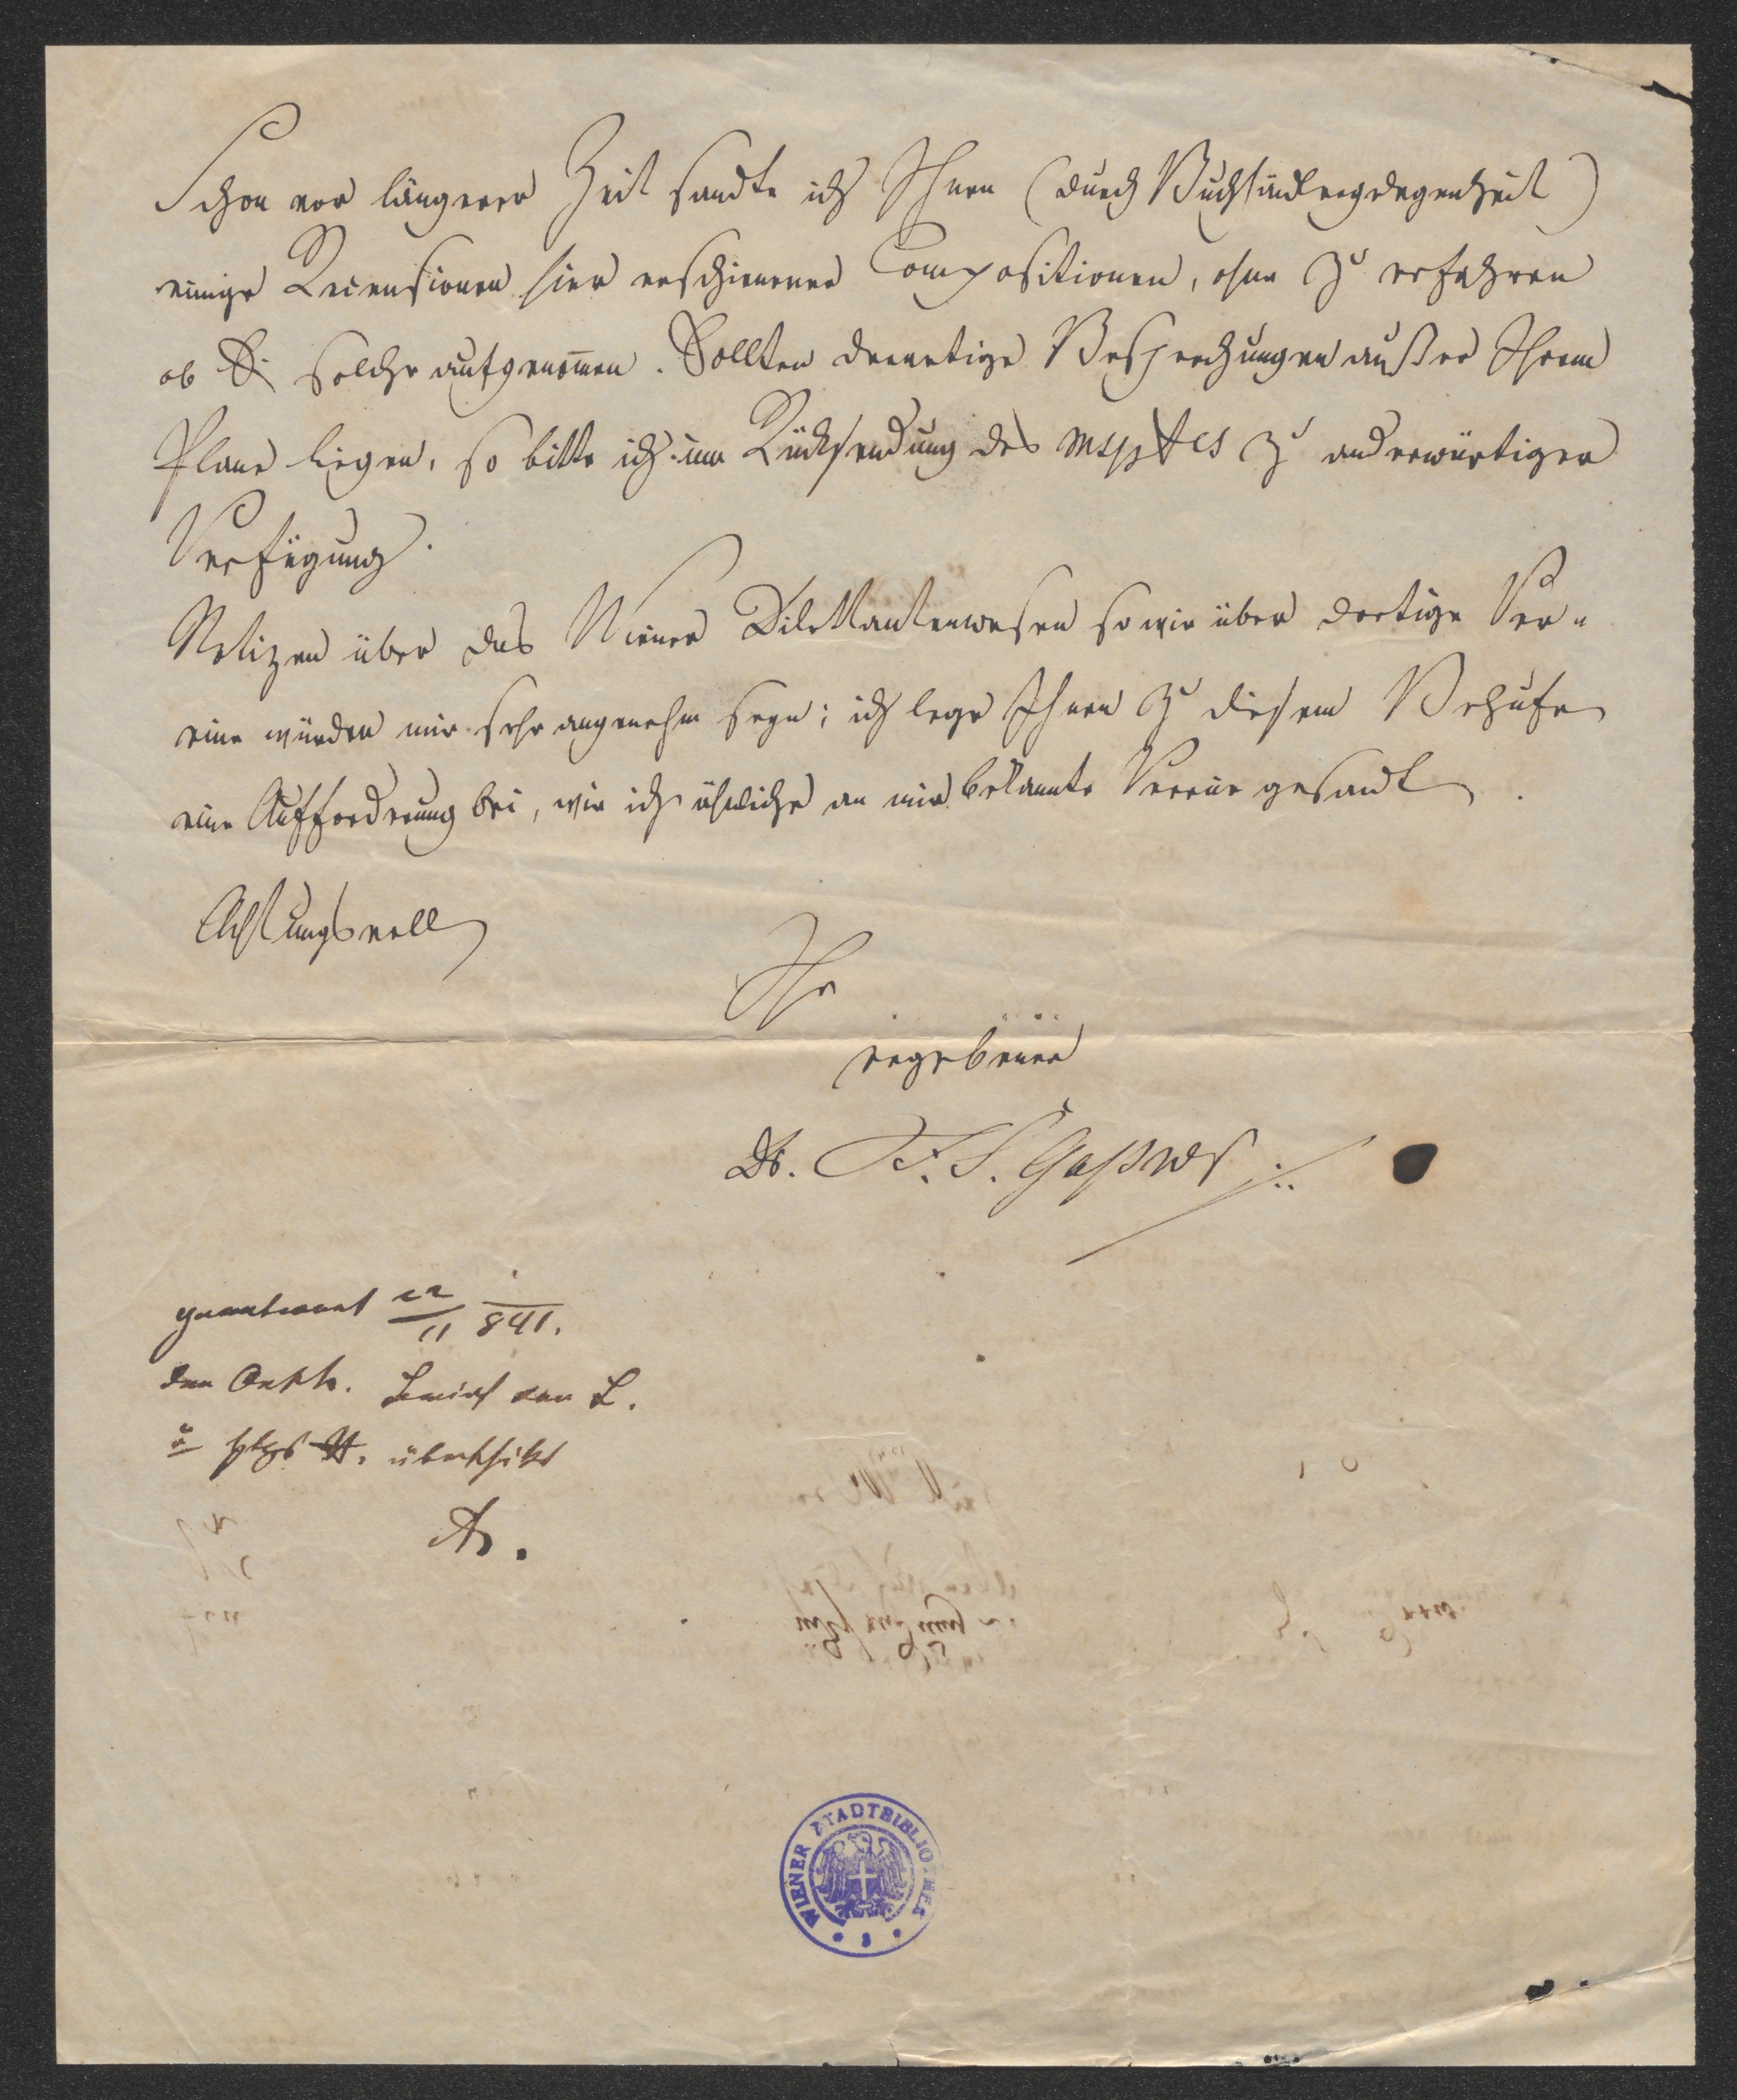 Schon vor längerer Zeit sandte ich Ihnen (durch Buchhändlergelegenheit)
einige Recensionen hier erschienener Compositionen, ohne zu erfahren
ob Sie solche aufgenom̄en. Sollten derartige Besprechungen außer Ihrem
Plane liegen, so bitte ich um Rücksendung des Msptes zu anderwärtiger
Verfügung.
Notizen über das Wiener Dilettantenwesen so wie über dortige Ver-
eine würden mir sehr angenehm seyn; ich lege Ihnen zu diesem Behufe
eine Aufforderung bei, wie ich ähnliche an mir bekannte Vereine gesandt.
Achtungsvoll
Ihr
ergebener
Dr. F. S. Gaßner
geantwortet 22/11 841.
den
überschickt
WIENER STADTBIBLIOTHEK